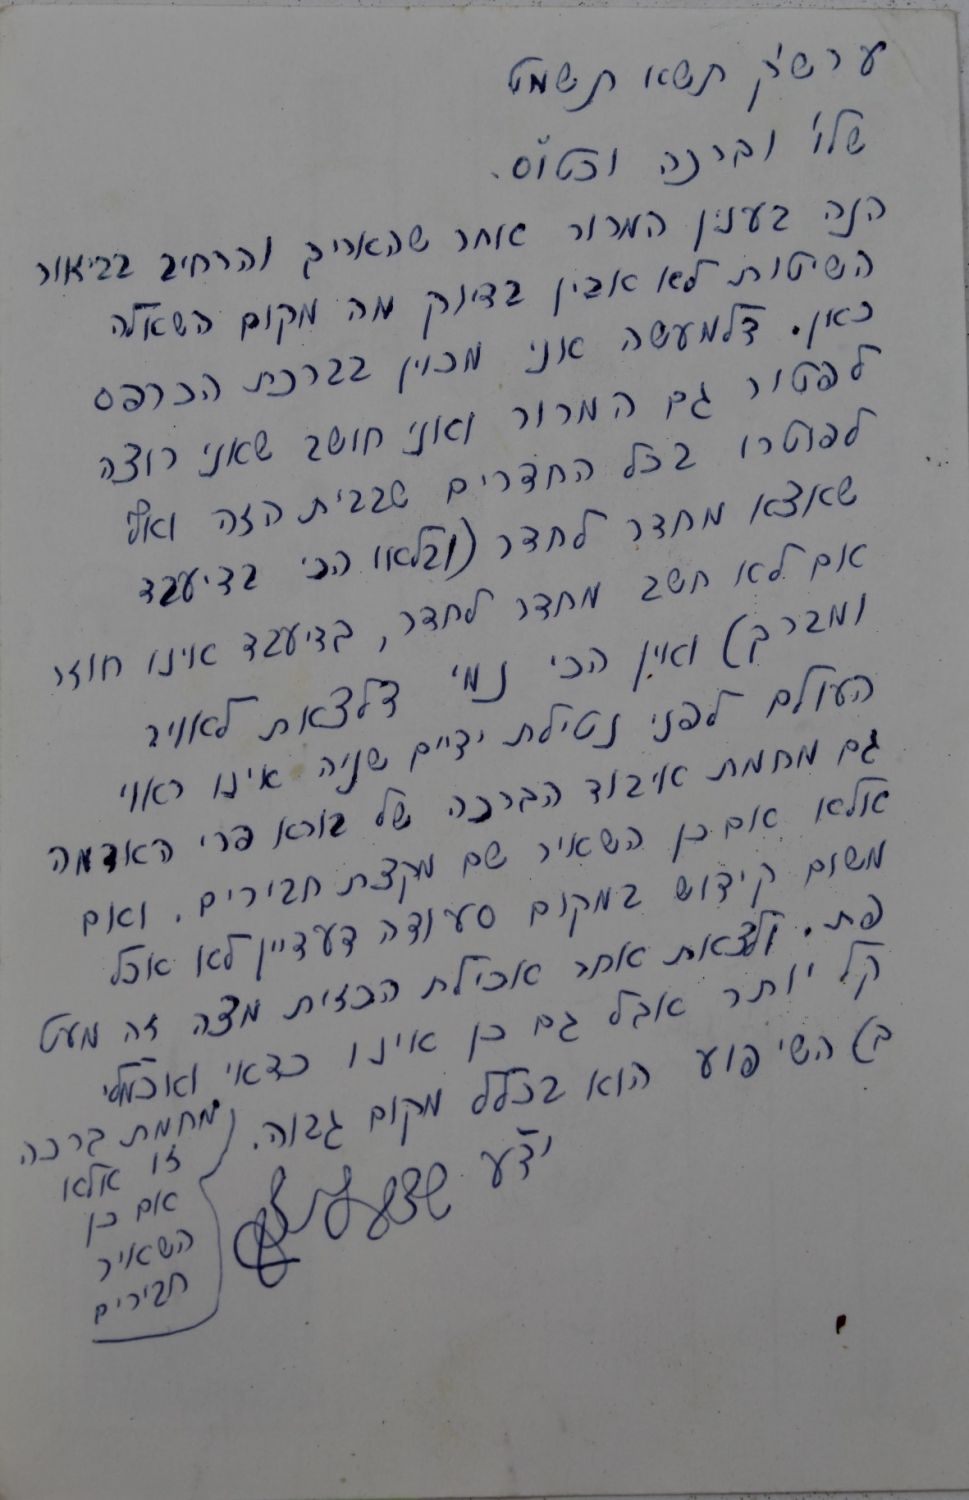 ערש"ק תשא תשמט
שלו' וברכה וכטו"ס.
הנה בענין המרור אחר שהאריך והרחיב בביאור
השיטות לא אבין בדיוק מה מקום השאלה
כאן. דלמעשה אני מכוין בברכת הכרפס
לפטור גם המרור ואני חושב שאני רוצה
לפוטרו בכל החדרים שבבית הזה ואף
שאצא מחדר לחדר (ובלאו הכי בדיעבד
אם לא חשב מחדר לחדר, בדיעבד אינו חוזר
ומברך) ואין הכי נמי דלצאת לאויר
העולם לפני נטילת ידיים שניה אינו ראוי
גם מחמת איבוד הברכה של בורא פרי האדמה
אלא אם כן השאיר שם מקצת חבירים. ואם
משום קידוש במקום סעודה דעדיין לא אכל
פת. ולצאת אחר אכילת הכזית מצה זה מעט
קל יותר אבל גם כן אינו כדאי
מחמת ברכה
זו אלא
אם כן
השאיר
חבירים
ב) השיפוע הוא בכלל מקום גבוה.